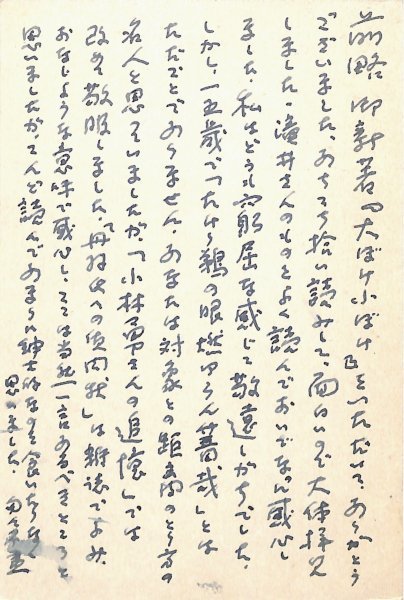 前略 御新著『大ぼけ小ぼけ』をいただいて、ありがとう
ございました、あちこち拾い読みして、面白いので大体拝見
しました。滝井さんのものをよく読んでおいでなのに感心し
ました、私はどうも窮屈な感じで敬遠しがちでした、
しかし、一五歳で「たけり鵜の眼燃ゆらん薔哉」とは
ただごとでありません、あなたは対象との距離のとり方の
名人と思っていましたが、「小林勇さんの追憶」では
改めて敬服しました、「丹羽氏への質問状」は雑誌でよみ、
おなじような意味で感心し、ここは当然一言あるべきところと
思いましたが、こんど読んであまりに紳士的なのを食いたりなく
思いました、